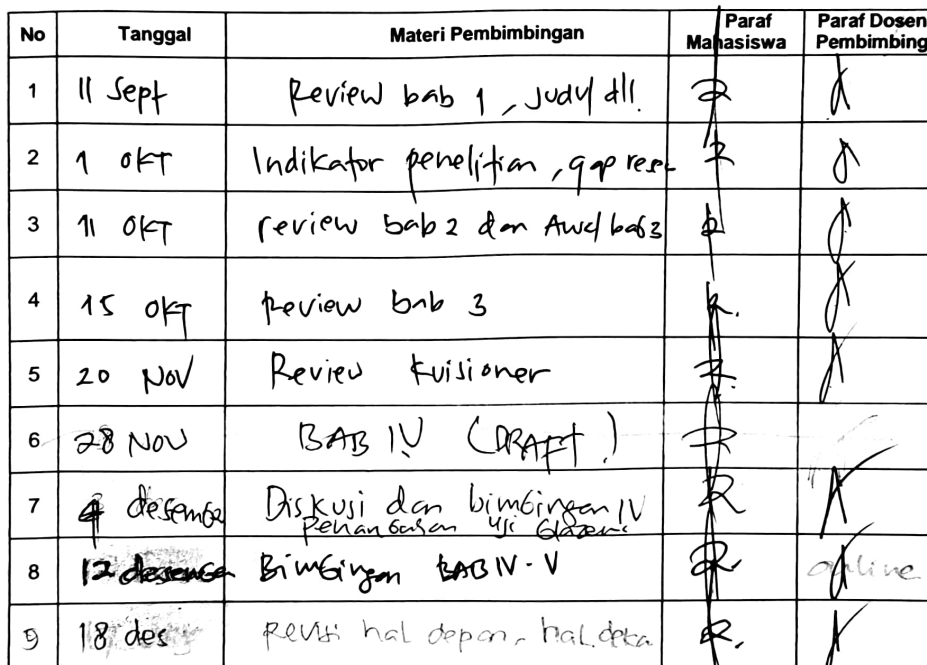 No Tanggal Materi Pembimbingan Paraf Mahasiswa Paraf Dosen Pembimbing
1 11 Sept Review bab 1, Judul dll.
2 1 OKT Indikator penelitian, gap rese
3 11 OKT review bab 2 dan Awal bab 3
4 15 OKT Review bab 3
5 20 NOV Review kuisioner
6 28 NOV BAB IV (DRAFT)
7 4 desember Diskusi dan bimbingan IV
uji
8 12 desember Bimbingan BAB IV - V online
9 18 des Revisi hal depan, hal.